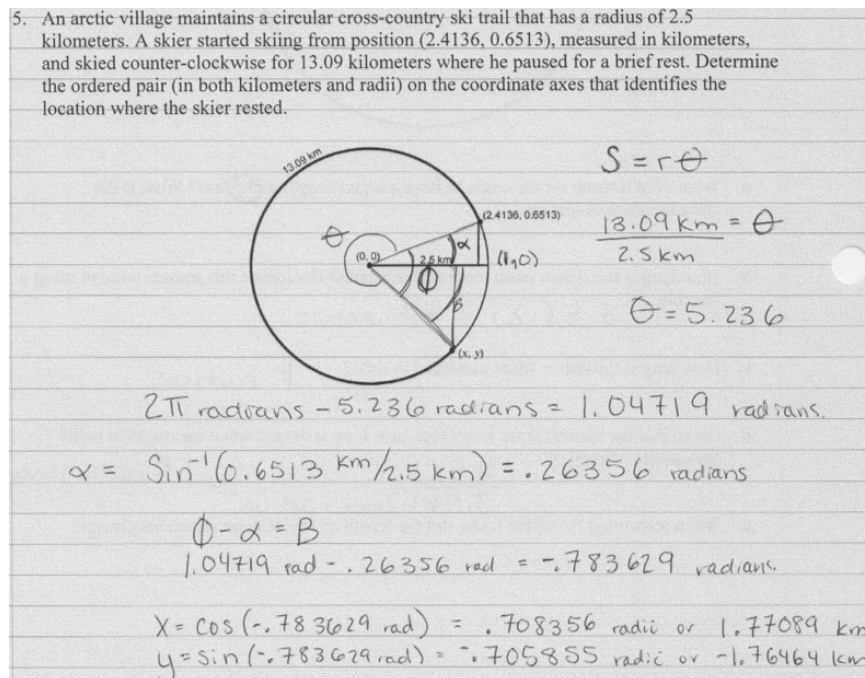 5. An arctic village maintains a circular cross-country ski trail that has a radius of 2.5
kilometers. A skier started skiing from position (2.4136, 0.6513), measured in kilometers,
and skied counter-clockwise for 13.09 kilometers where he paused for a brief rest. Determine
the ordered pair (in both kilometers and radii) on the coordinate axes that identifies the
location where the skier rested.
13.09 km
S = rθ
(2.4136, 0.6513)
θ
α
13.09 km = θ
2.5 km
(0, 0)
2.5 km
(1,0)
ϕ
B
θ = 5.236
(x, y)
2π radians - 5.236 radians = 1.04719 radians.
α = Sin⁻¹(0.6513 km/2.5 km) = .26356 radians
ϕ - α = B
1.04719 rad - .26356 rad = -.783629 radians.
X = cos(-.783629 rad) = .708356 radii or 1.77089 km
y = sin(-.783629 rad) = -.705855 radii or -1.76464 km